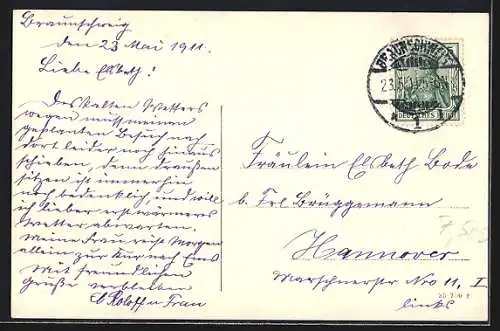 Braunschweig
den 23 Mai 1911.
Liebe Elsbeth!
Des kalten Wetters
wegen muss meinen
geplanten Besuch nach
dort leider noch hinaus
schieben, denn draußen
sitzen ist immerhin
noch bedenklich, und will
ich lieber erst wärmeres
Wetter abwarten.
Meine Frau reist Morgen
allein zur Kur nach Ems
Mit freundlichen
Grüße verbleiben
Roloff u Frau
BRAUNSCHWEIG
23.5.11
1
DEUTSCHES REICH
Fräulein Elsbeth Bode
b. Frl Brüggemann
Hannover
Marschnerstr Nro 11. I
links